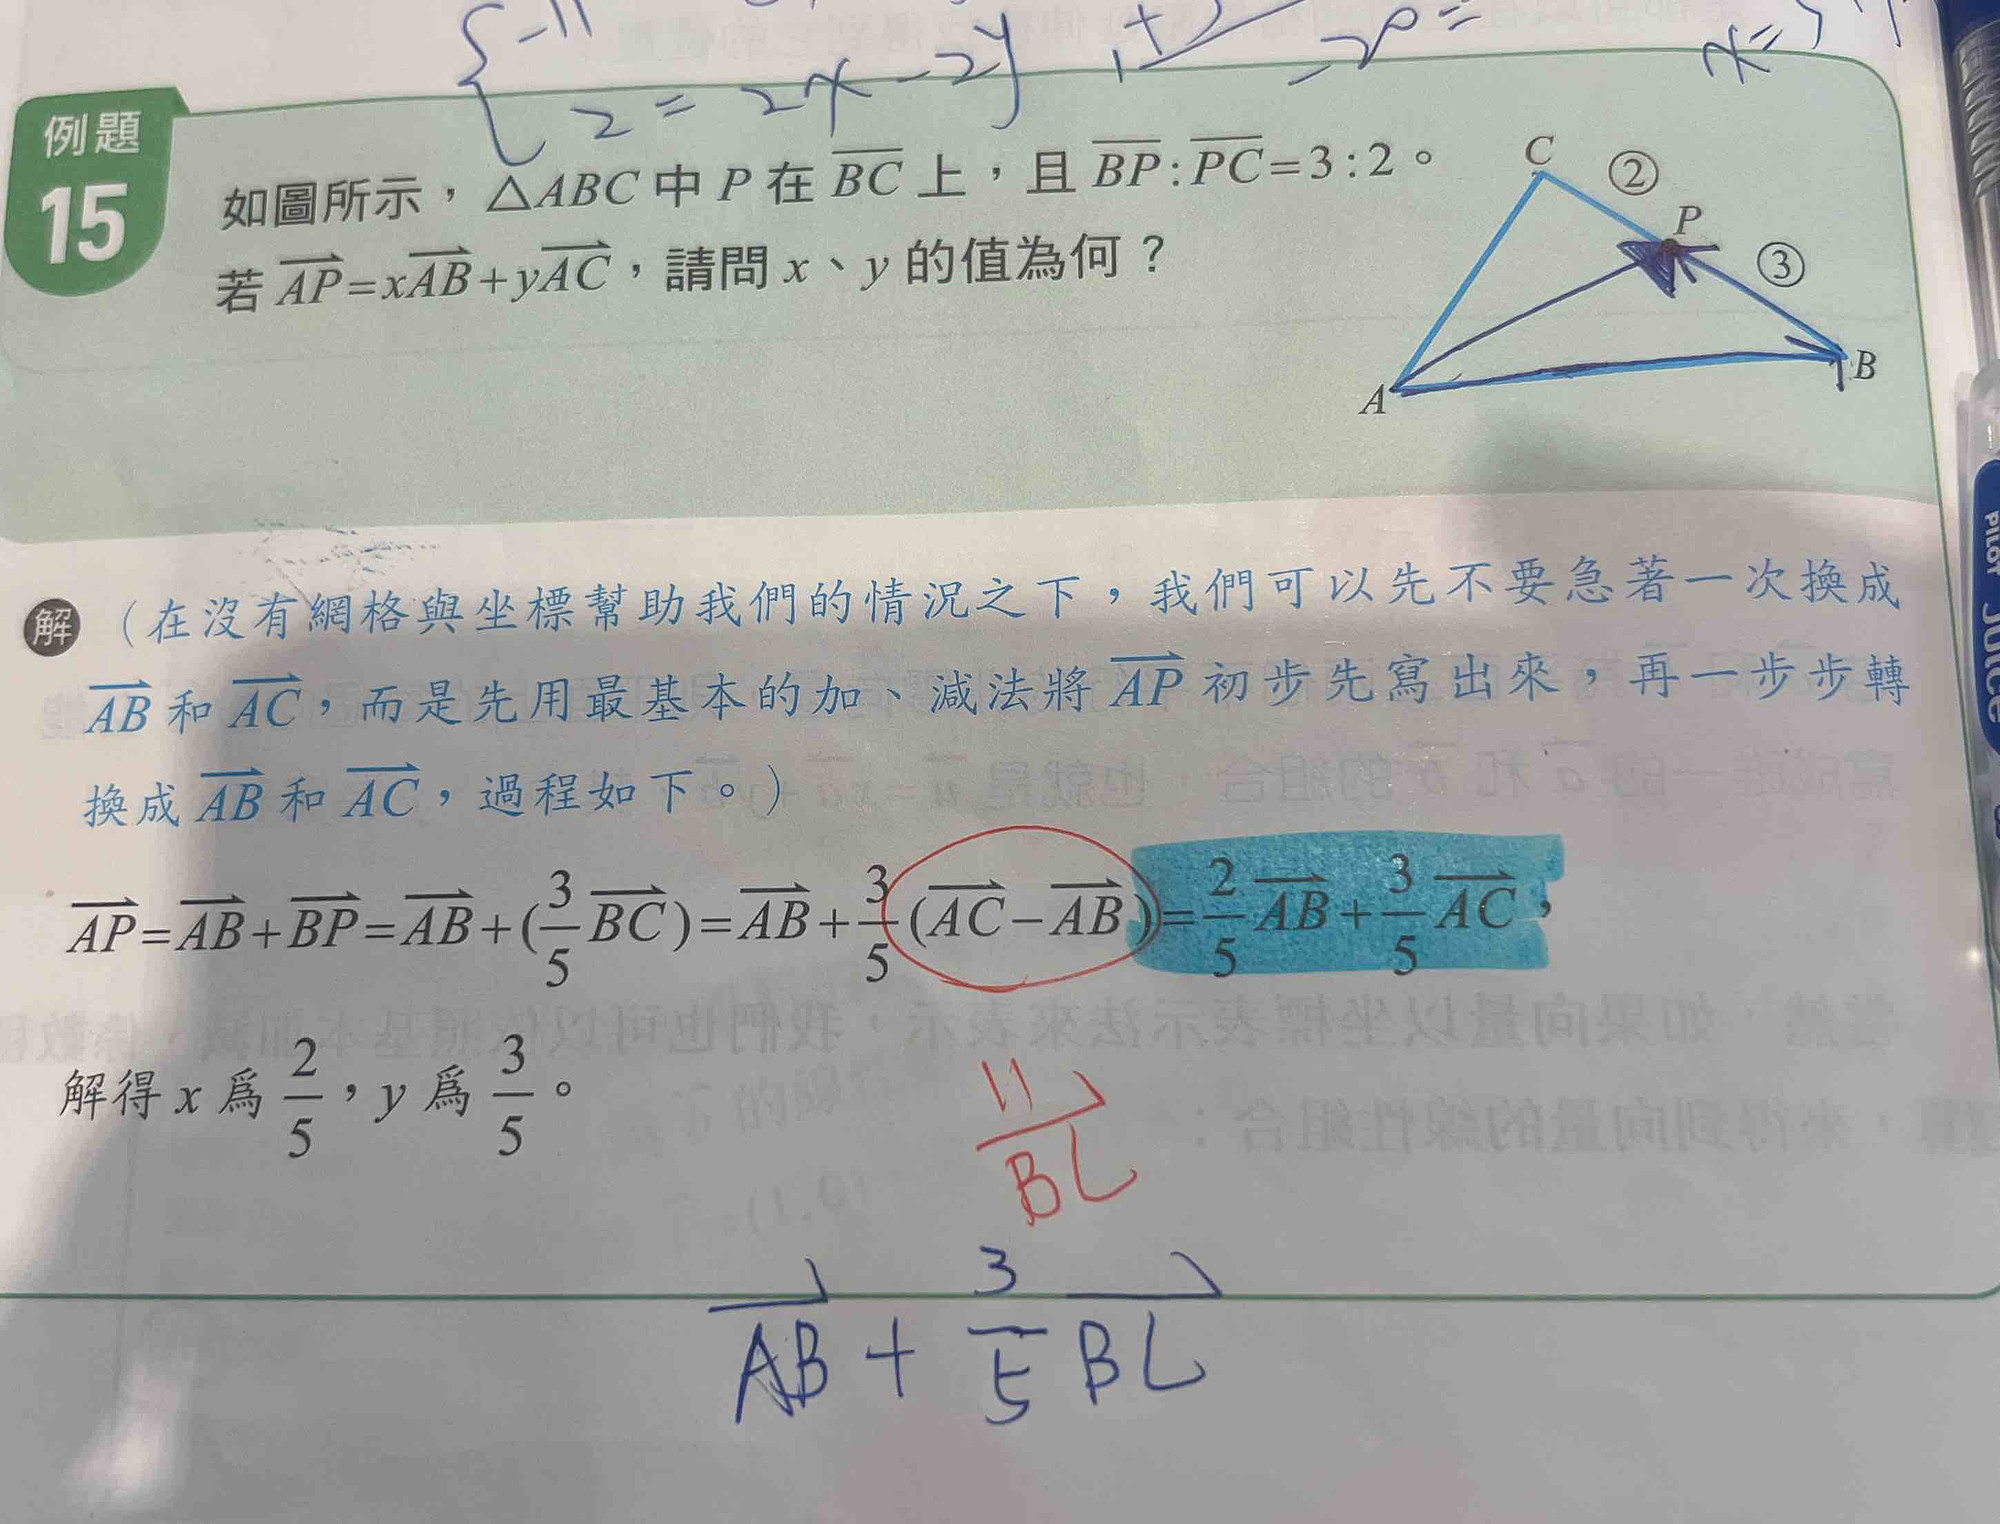 {-11
2 = 2x - 2y
x=
例題
15
如圖所示，△ABC 中 P 在 BC 上，且 BP : PC = 3 : 2。
若 AP = xAB + yAC，請問 x、y 的值為何？
C ②
P
③
B
A
解（在沒有網格與坐標幫助我們的情況之下，我們可以先不要急著一次換成
AB 和 AC，而是先用最基本的加、減法將 AP 初步先寫出來，再一步步轉
換成 AB 和 AC，過程如下。）
AP = AB + BP = AB + (3/5 BC) = AB + 3/5 (AC − AB) = 2/5 AB + 3/5 AC，
解得 x 爲 2/5，y 爲 3/5。
BC
AB + 3/5 BC
PILOT Juice